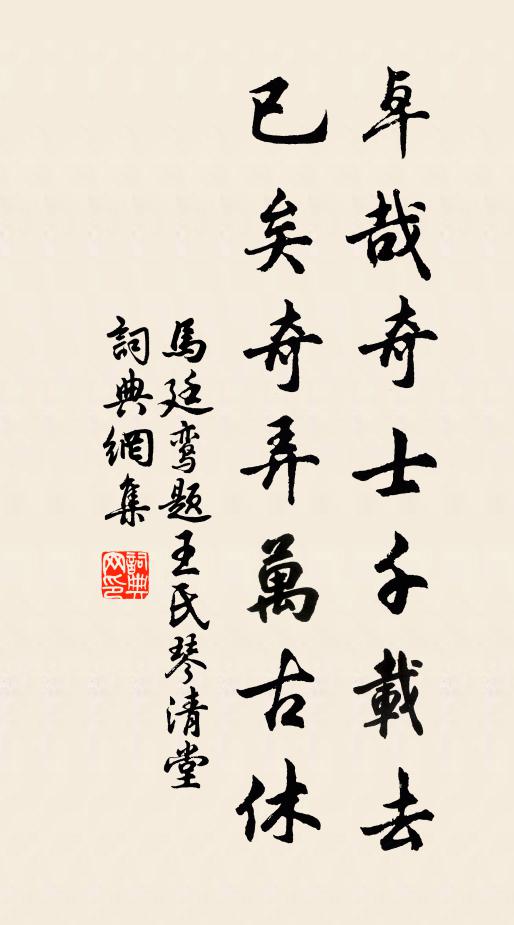 卓哉奇士千載去
已矣奇弄萬古休
馬廷鸾題王氏琴清堂
詞典網集
詞典网印